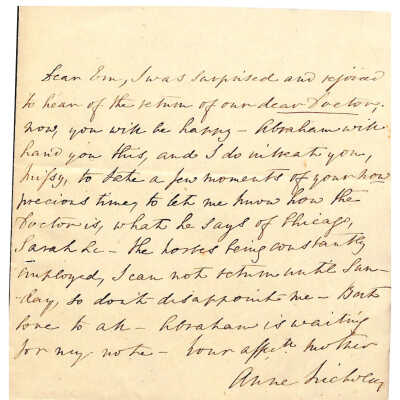 Dear Em, I was surprised and rejoiced
to hear of the return of our dear Doctor,
now, you will be happy - Abraham will
hand you this, and I do intreat you,
to take a few moments of your now
precious time, to let me know how the
Doctor is, what he says of Chicago,
Sarah &c - the horses being constantly
employed, I can not return until Sun-
day, so don't disappoint me - Best
love to all - Abraham is waiting
for my note - Your affte Mother
Anne Nicholas